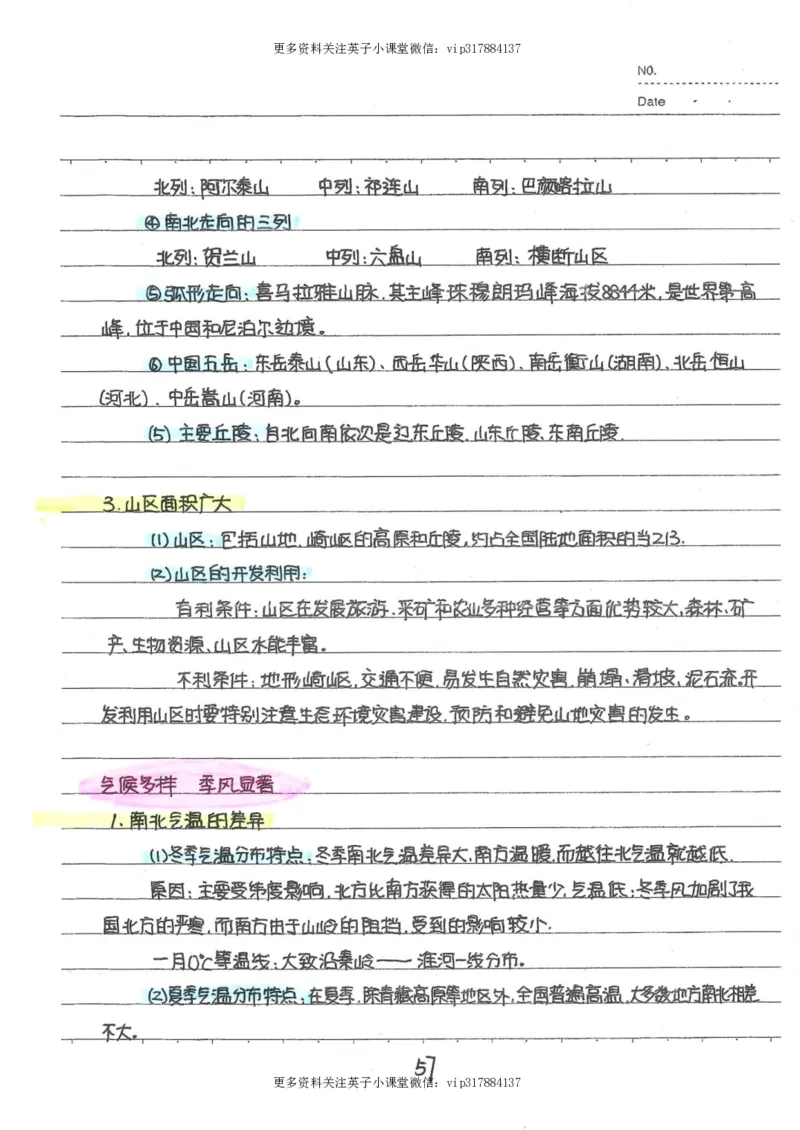 更多资料关注英子小课堂微信：vip317884137
NO.
Date
北列：阿尔泰山 中列：祁连山 南列：巴颜喀拉山
④南北走向的三列
北列：贺兰山 中列：六盘山 南列：横断山区
⑤弧形走向：喜马拉雅山脉，其主峰珠穆朗玛峰海拔8844米，是世界第一高
峰，位于中国和尼泊尔边境。
⑥中国五岳：东岳泰山（山东）、西岳华山（陕西）、南岳衡山（湖南）、北岳恒山
（河北）、中岳嵩山（河南）。
(5) 主要丘陵：自北向南依次是辽东丘陵、山东丘陵、东南丘陵.
3.山区面积广大
(1)山区：包括山地、崎岖的高原和丘陵，约占全国陆地面积的当2/3.
(2)山区的开发利用：
有利条件：山区在发展旅游、采矿和农业多种经营等方面优势较大，森林、矿
产、生物资源、山区水能丰富。
不利条件：地形崎岖，交通不便，易发生自然灾害，崩塌、滑坡、泥石流。开
发利用山区时要特别注意生态环境灾害建设，预防和避免山地灾害的发生。
气候多样 季风显著
1、南北气温的差异
(1)冬季气温分布特点：冬季南北气温差异大，南方温暖，而越往北气温就越低.
原因：主要受纬度影响，北方比南方获得的太阳热量少，气温低；冬季风加剧了我
国北方的严寒，而南方由于山岭的阻挡，受到的影响较小.
一月0℃等温线：大致沿秦岭——淮河一线分布。
(2)夏季气温分布特点：在夏季，除青藏高原等地区外，全国普遍高温，大多数地方南北相差
不大。
57
更多资料关注英子小课堂微信：vip317884137